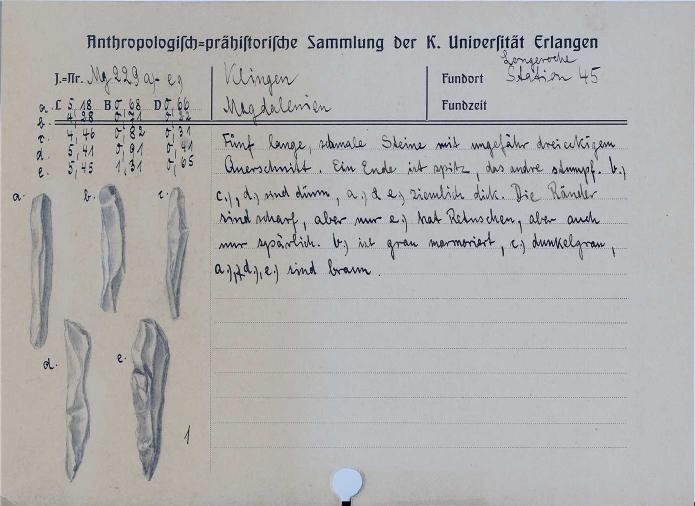 Anthropologisch=prähistorische Sammlung der K. Universität Erlangen
J.=Nr. Mg 229 a) - e)
Klingen
Magdalenien
Fundort Longeroche Station 45
Fundzeit
a. L 5,18 B 0,68 D 0,66
b. 4,28 0,71 0,22
c. 4,46 0,82 0,31
d. 5,41 0,91 0,41
e. 5,45 1,31 0,65
Fünf lange, schmale Steine mit ungefähr dreieckigem
Querschnitt. Ein Ende ist spitz, das andre stumpf. b.)
c.), d.) sind dünn, a.) d e.) ziemlich dick. Die Ränder
sind scharf, aber nur e.) hat Retuschen, aber auch
nur spärlich. b.) ist grau marmoriert, c.) dunkelgrau,
a.), d.), e.) sind braun.
a.
b.
c.
d.
e.
1